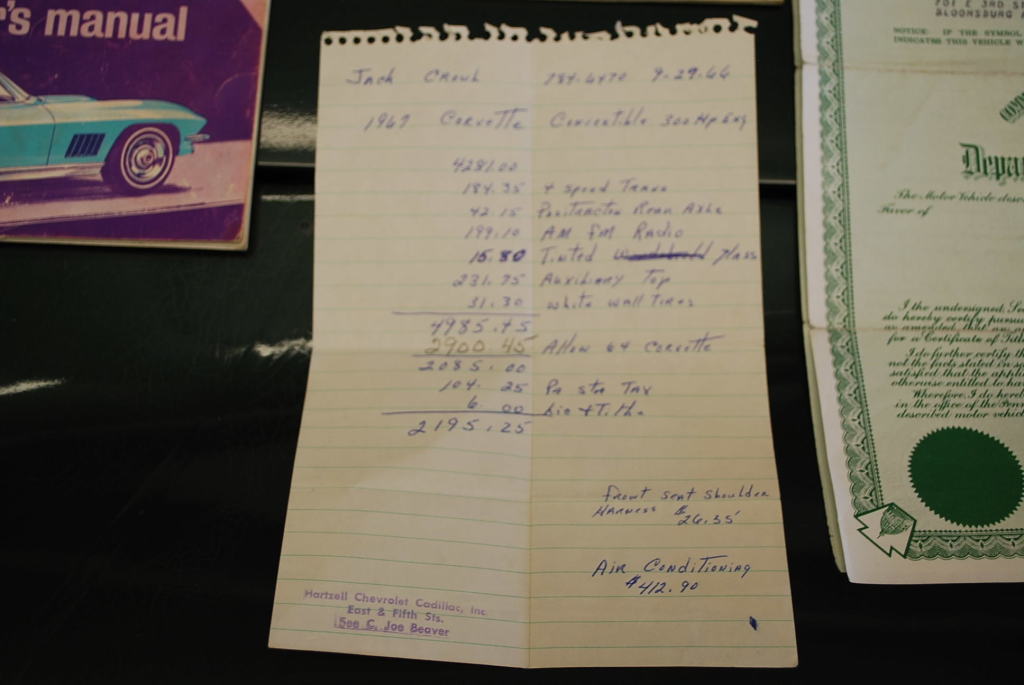 's manual
Jack 784-6470 9-29-66
1967 Corvette Convertible 300 Hp Eng
4281.00
184.35 4 speed Trans
42.15 Positraction Rear Axle
199.10 AM FM Radio
15.80 Tinted glass
231.75 Auxiliary Top
31.30 white wall Tires
4985.45
2900.45 Allow 64 Corvette
2085.00
104.25 Pa sta Tax
6.00 Lic + Title
2195.25
front seat shoulder
Harness $
26.35
Air Conditioning
$412.90
Hartzell Chevrolet Cadillac, Inc.
East & Fifth Sts.
See C. Joe Beaver
701 E 3RD S
BLOOMSBURG
NOTICE: IF THE SYMBOL
INDICATES THIS VEHICLE W
Depar
The Motor Vehicle desc
Favor of
I the undersigned, Se
do hereby certify pursua
as amended, that an a
for a Certificate of Titl
I do further certify th
not the facts stated in s
satisfied that the appli
otherwise entitled to ha
Wherefore, I do hereb
in the office of the Penn
described motor vehicl